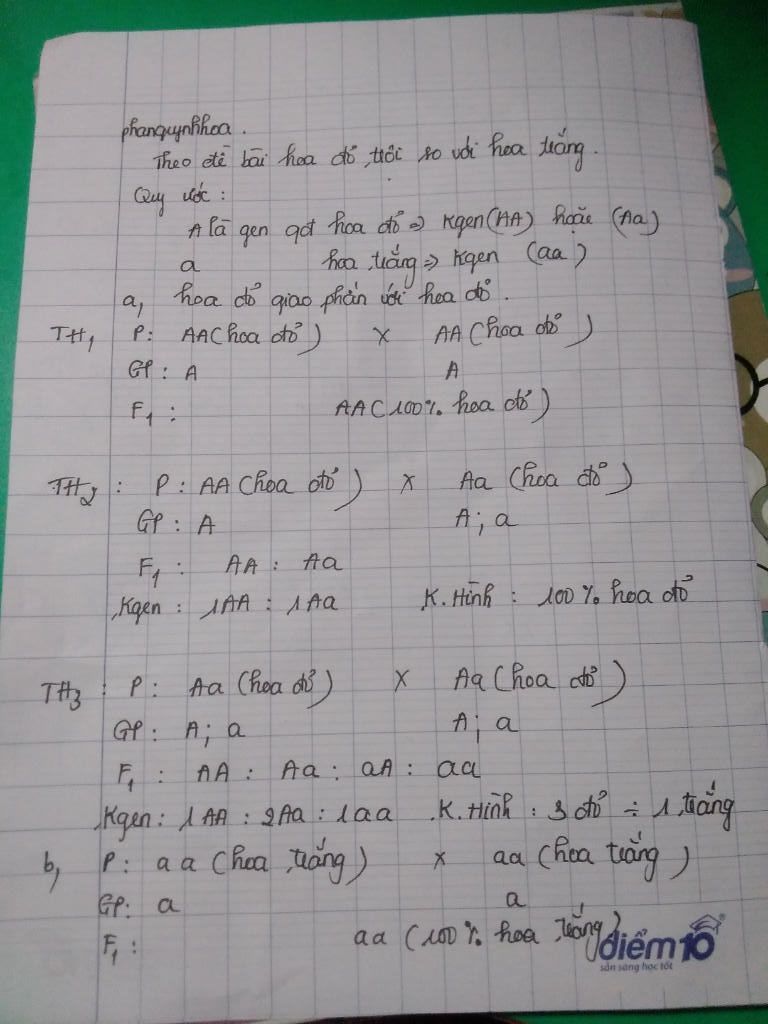 phanquynhhoa.
Theo đề bài hoa đỏ trội so với hoa trắng.
Quy ước :
A là gen qđ hoa đỏ ⇒ Kgen (AA) hoặc (Aa)
a hoa trắng ⇒ Kgen (aa)
a, hoa đỏ giao phấn với hoa đỏ.
TH1 P: AA (hoa đỏ) x AA (hoa đỏ)
GP : A A
F1 : AA (100% hoa đỏ)
TH2 : P : AA (hoa đỏ) x Aa (hoa đỏ)
GP : A A ; a
F1 : AA : Aa
Kgen : 1AA : 1Aa K.Hình : 100% hoa đỏ
TH3 : P : Aa (hoa đỏ) x Aa (hoa đỏ)
GP: A ; a A ; a
F1 : AA : Aa : aA : aa
Kgen : 1AA : 2Aa : 1aa K.Hình : 3 đỏ ÷ 1 trắng
b, P: aa (hoa trắng) x aa (hoa trắng)
GP: a a
F1 : aa (100% hoa trắng)
điểm10
sẵn sàng học tốt